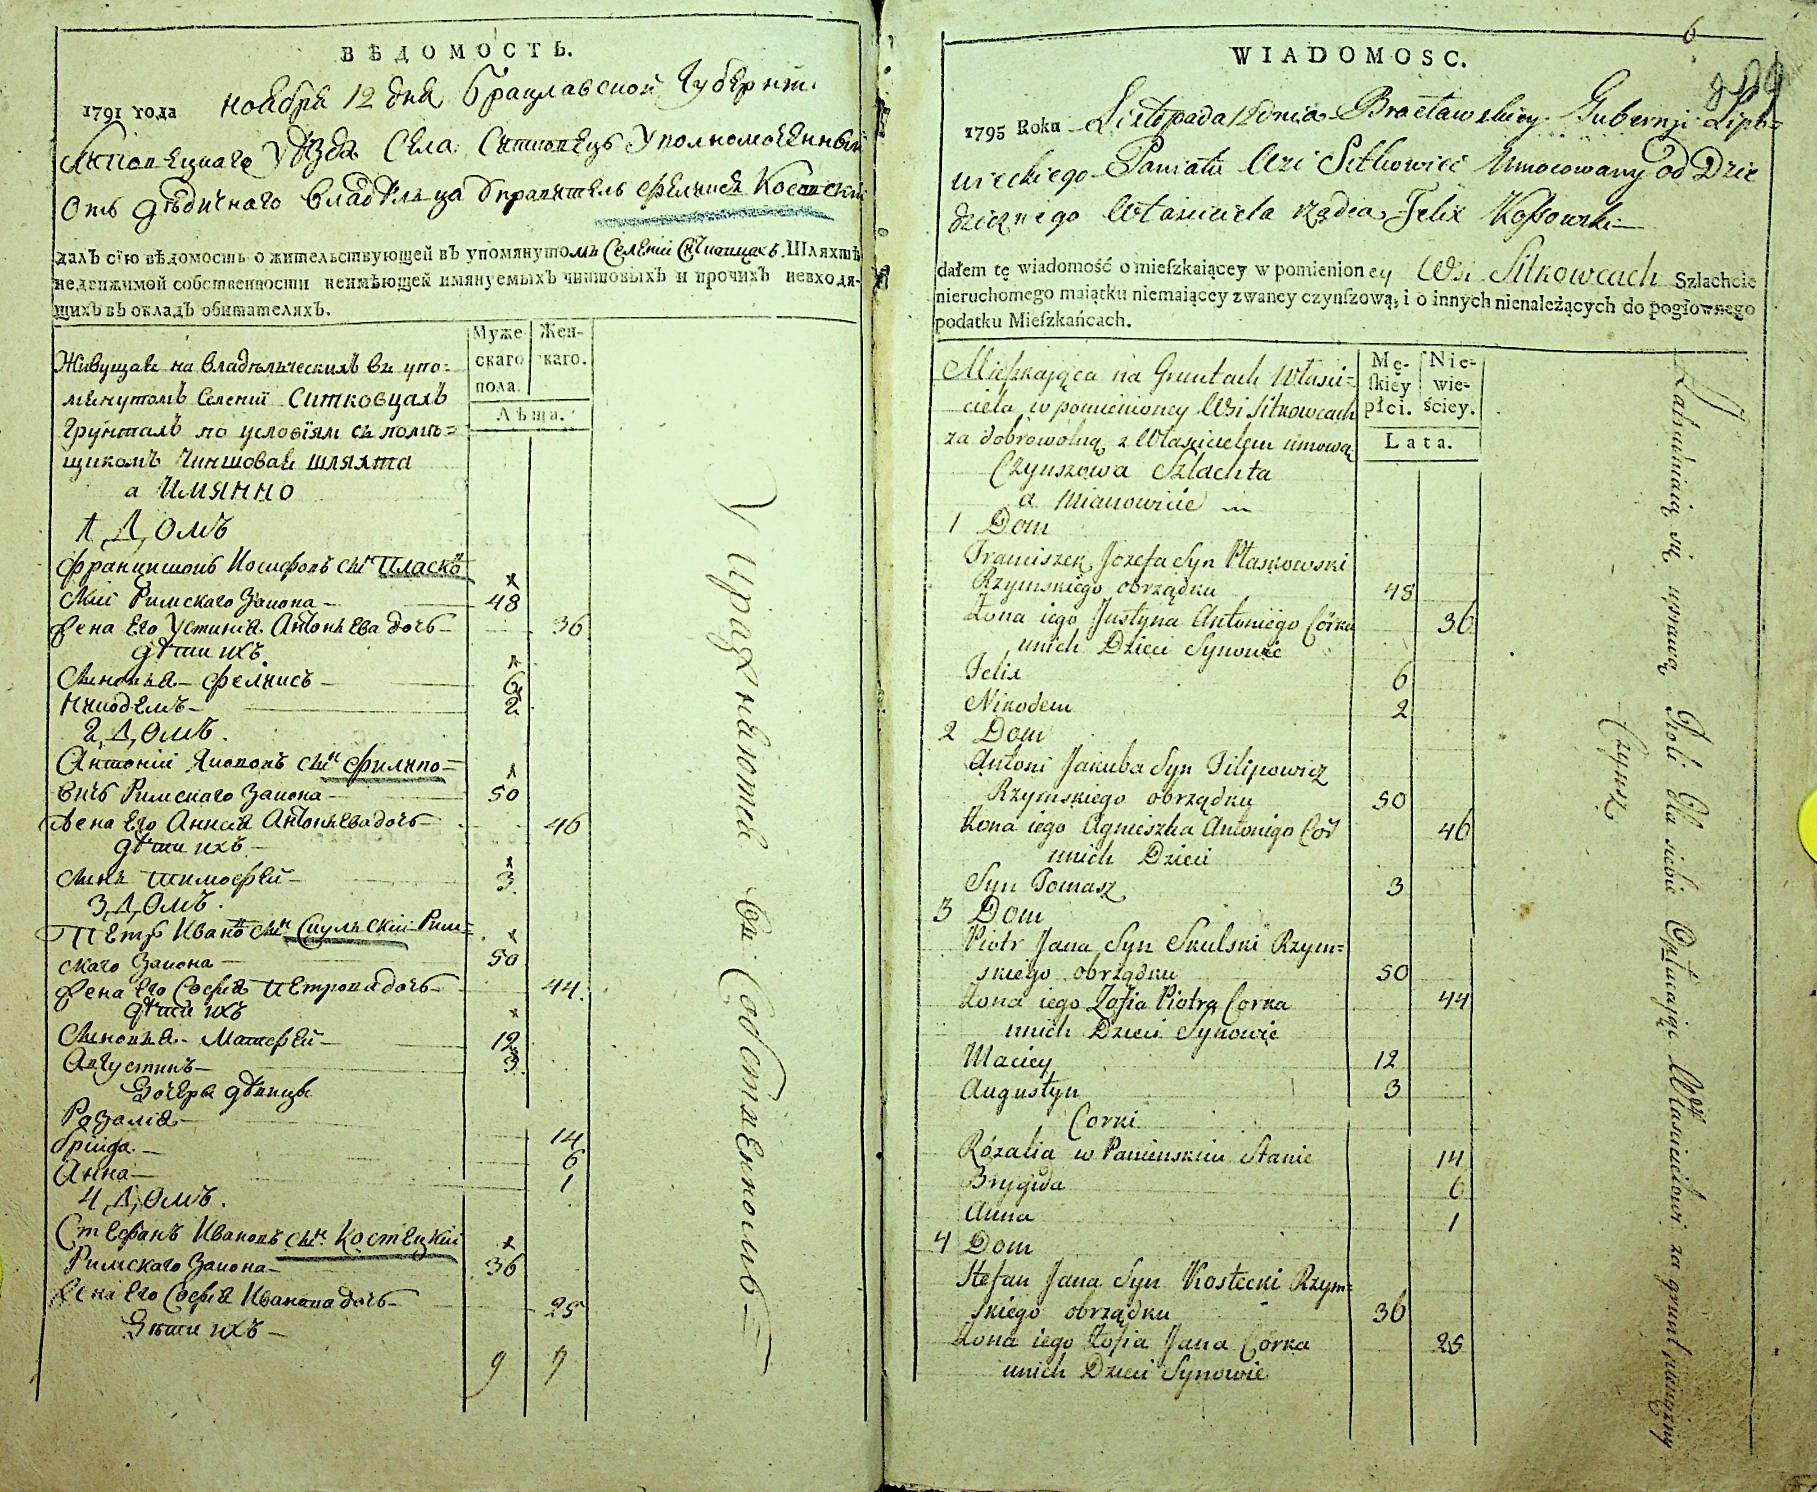 ВѢДОМОСТЬ.
1791 года ноября 12 дня Брацлавской Губерніи
Липовецкаго Уѣзда Села Ситковецъ Уполномоченный
Отъ дѣдичнаго владѣльца Управитель Феликсъ Косовскій
далъ сїю вѣдомость о жительствующей въ упомянутомъ Селеніи Ситковцахъ Шляхтѣ
недвижимой собственности неимѣющей имянуемыхъ чиншовыхъ и прочихъ невходя-
щихъ въ окладъ обитателяхъ.
Муже- Жен-
скаго скаго.
пола.
Лѣта.
Живущая на владѣльческихъ въ упо=
мянутомъ Селеніи Ситковцахъ
грунтахъ по условіям съ помѣ=
щикомъ Чиншовая шляхта
а имянно
1 Домъ
Францишокъ Иосифовъ сынъ Пласков
скій Римскаго Закона — 48
Жена Его Устинія Антоньева дочь — 36
дѣти ихъ
Сыновья — Феликсъ — 6
Никодемъ — 2
2 Домъ.
Антоній Якововъ сынъ Филипо=
вичъ Римскаго Закона 50
Жена Его Анися Антоньева дочь — 46
дѣти ихъ —
сынъ Тимофей — 3
3 Домъ.
Петръ Ивановъ сынъ Скульскій Рим=
скаго Закона — 50
Жена Его Софія Петрова дочь — 44
дѣти ихъ
Сыновья — Матфей — 12
Августинъ — 3
Дочеры дѣвицы
Розалія — 14
Бригида — 6
Анна — 1
4 Домъ.
Стефанъ Ивановъ сынъ Костецкій
Римскаго Закона — 36
Жена Его Софія Иванова дочь — 25
Дѣти ихъ —
9 7
Упражняются въ Собственномъ
6
WIADOMOSC.
1795 Roku Listopada 12 dnia Bracławskiey Gubernji Lipo=
wieckiego Powiatu Wsi Sitkowiec Umocowany od Dzie
dzicznego Właściciela rządca Felix Kossowski —
dałem tę wiadomość o mieſzkaiącey w pomienioney Wsi Sitkowcach Szlachcie
nieruchomego maiątku niemaiącey zwaney czynſzową, i o innych nienależących do pogłownego
podatku Mieſzkańcach.
Mę- Nie-
ſkiey wie-
płci. ściey.
Lata.
Mieszkająca na Gruntach Własci=
ciela w pomienioney Wsi Sitkowcach
za dobrowolną z Właścicielem umową
Czynszowa Szlachta
a Mianowicie
1 Dom
Franciszek Jozefa Syn Płaskowski
Rzymskiego obrządku 48
Żona iego Justyna Antoniego Córka 36
unich Dzieci Synowie
Felix 6
Nikodem 2
2 Dom
Antoni Jakuba Syn Filipowicz
Rzymskiego obrządku 50
Żona iego Agnieszka Antonigo Cór 46
unich Dzieci
Syn Tomasz 3
3 Dom
Piotr Jana Syn Skulski Rzym=
skiego obrządku 50
Żona iego Zofia Piotra Corka 44
unich Dzieci Synowie
Maciey 12
Augustyn 3
Corki
Rózalia w Panienskim Stanie 14
Brygida 6
Anna 1
4 Dom
Stefan Jana Syn Kostecki Rzym=
skiego obrządku 36
Żona iego Zofia Jana Corka 25
unich Dzieci Synowie
Zatrudniaią się uprawą Roli dla siebie Opłacaiąc Właścicielowi za grunt pieniężny
Czynsz